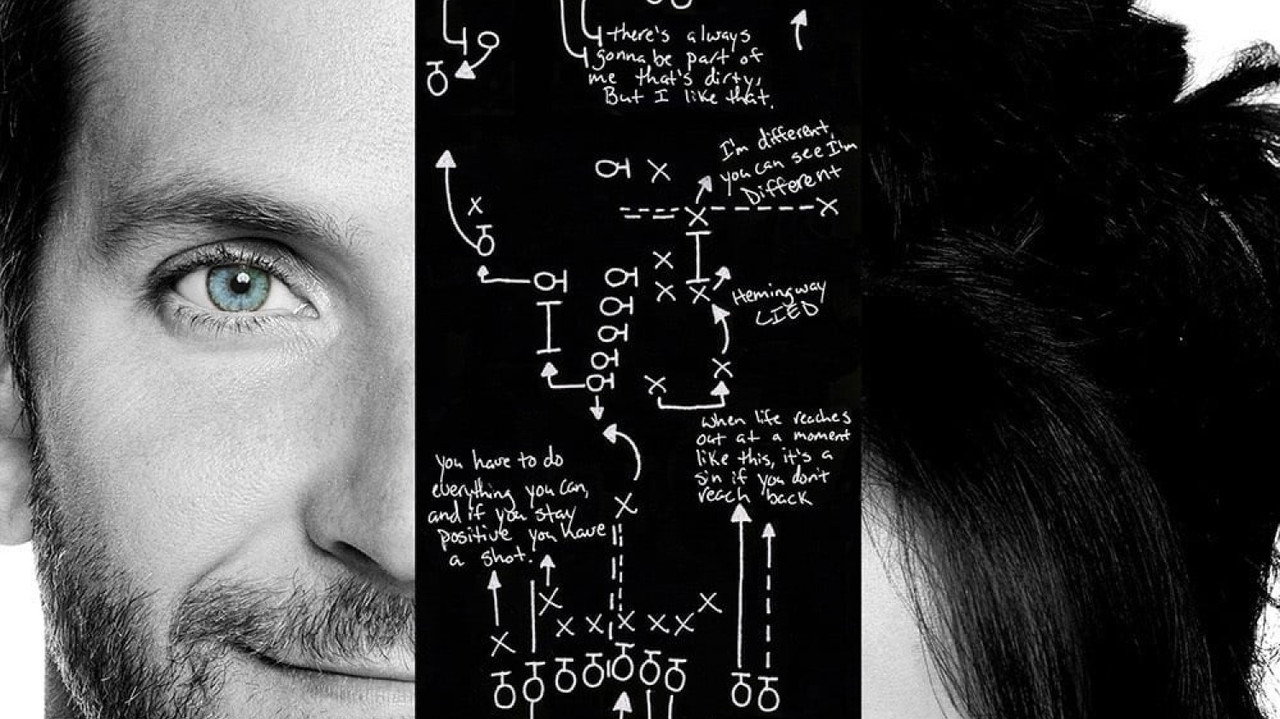 there's always
gonna be part of
me that's dirty,
But I like that.
I'm different,
you can see I'm
Different
Hemingway
LIED
when life reaches
out at a moment
like this, it's a
sin if you don't
reach back
you have to do
everything you can,
and if you stay
positive you have
a shot.